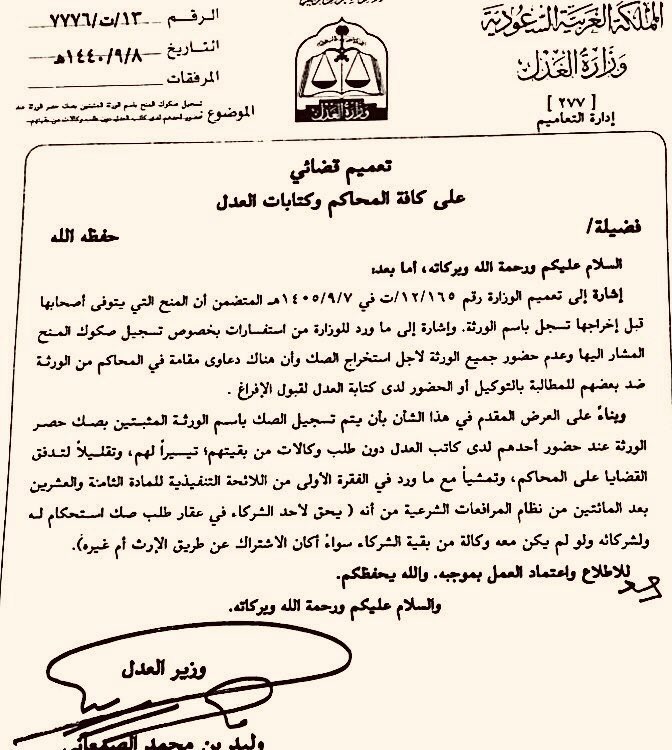 المملكة العربية السعودية
وزارة العدل
[ ٢٧٧ ]
إدارة التعاميم
وزارة العدل
الرقم ١٣/ت/٧٧٧٦
التاريخ ١٤٤٠/٩/٨هـ
المرفقات
الموضوع تسجيل صكوك المنح باسم الورثة المثبتين بصك حصر الورثة عند
حضور أحدهم لدى كاتب العدل دون طلب وكالات من بقيتهم
تعميم قضائي
على كافة المحاكم وكتابات العدل
فضيلة/ حفظه الله
السلام عليكم ورحمة الله وبركاته، أما بعد:
إشارة إلى تعميم الوزارة رقم ١٢/١٦٥/ت في ١٤٠٥/٩/٧هـ المتضمن أن المنح التي يتوفى أصحابها
قبل إخراجها تسجل باسم الورثة. وإشارة إلى ما ورد للوزارة من استفسارات بخصوص تسجيل صكوك المنح
المشار اليها وعدم حضور جميع الورثة لأجل استخراج الصك وأن هناك دعاوى مقامة في المحاكم من الورثة
ضد بعضهم للمطالبة بالتوكيل أو الحضور لدى كتابة العدل لقبول الإفراغ .
وبناءً على العرض المقدم في هذا الشأن بأن يتم تسجيل الصك باسم الورثة المثبتين بصك حصر
الورثة عند حضور أحدهم لدى كاتب العدل دون طلب وكالات من بقيتهم؛ تيسيراً لهم، وتقليلاً لتدفق
القضايا على المحاكم، وتمشياً مع ما ورد في الفقرة الأولى من اللائحة التنفيذية للمادة الثامنة والعشرين
بعد المائتين من نظام المرافعات الشرعية من أنه ( يحق لأحد الشركاء في عقار طلب صك استحكام له
ولشركائه ولو لم يكن معه وكالة من بقية الشركاء سواءً أكان الاشتراك عن طريق الإرث أم غيره).
للاطلاع واعتماد العمل بموجبه. والله يحفظكم.
والسلام عليكم ورحمة الله وبركاته.
وزير العدل
وليد بن محمد الصمعاني